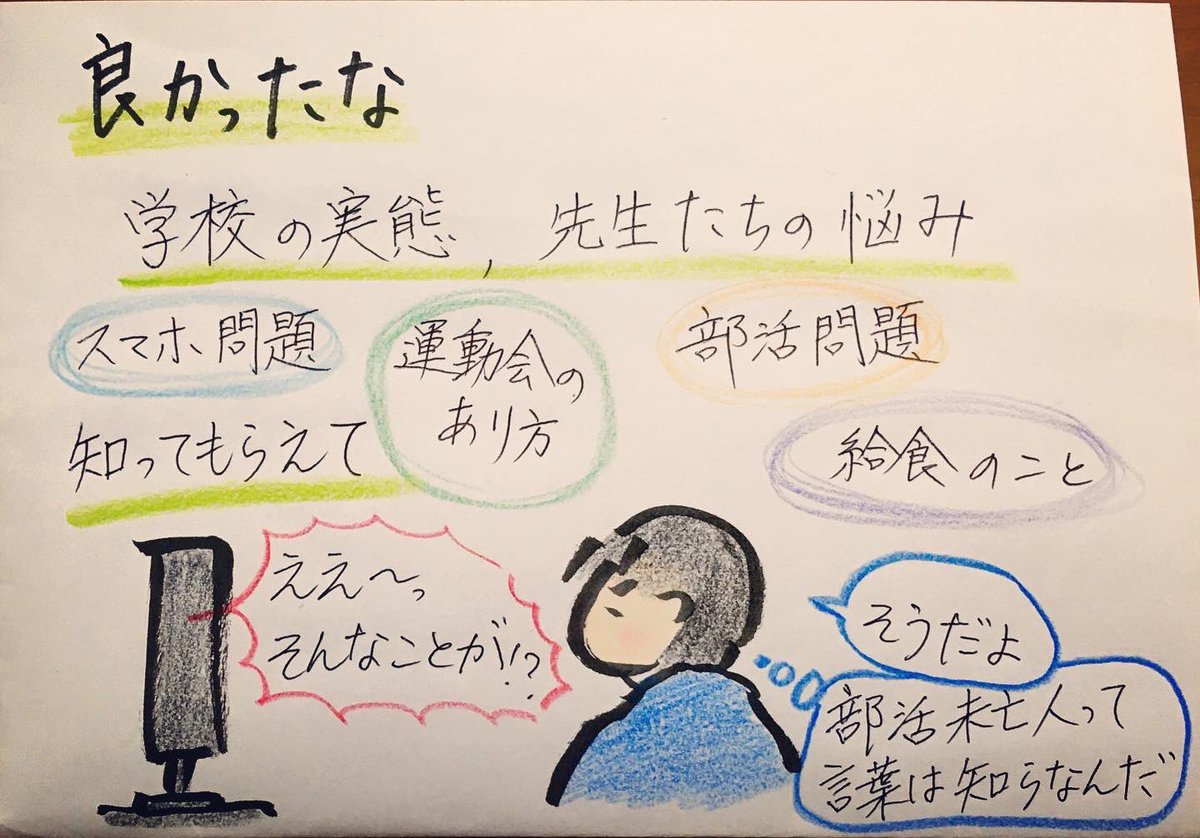 良かったな
学校の実態, 先生たちの悩み
スマホ問題
運動会の
あり方
部活問題
知ってもらえて
給食のこと
ええ〜っ
そんなことが!?
そうだよ
部活未亡人って
言葉は知らなんだ